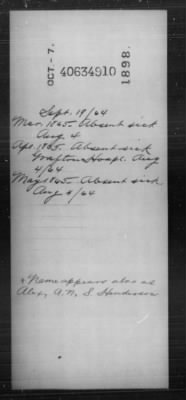 OCT - 7.
40634910
1898.
Sept. 19/64
Mar. 1865. Absent sick
Aug. 4
Apr. 1865. Absent sick
Grafton Hospl. Aug
4/64
May 1865. Absent sick
Aug 4/64
* Name appears also as
Alex, A. N., S. Henderson